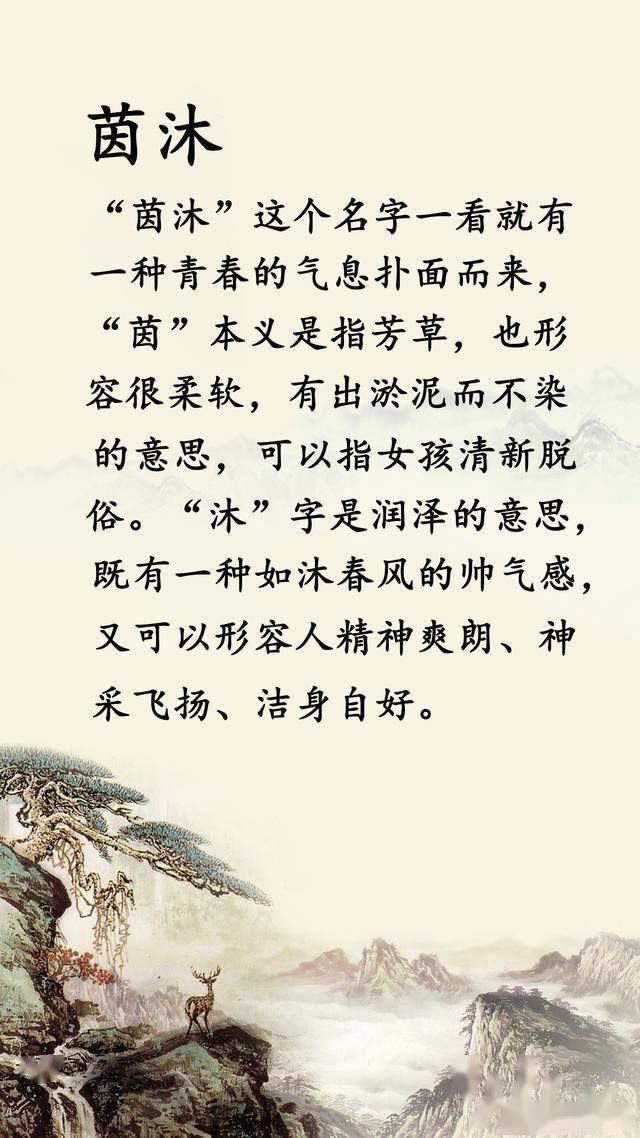 茵沐
“茵沐”这个名字一看就有
一种青春的气息扑面而来，
“茵”本义是指芳草，也形
容很柔软，有出淤泥而不染
的意思，可以指女孩清新脱
俗。“沐”字是润泽的意思，
既有一种如沐春风的帅气感，
又可以形容人精神爽朗、神
采飞扬、洁身自好。